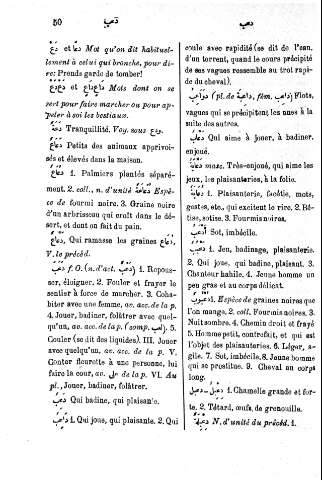 50
دعب
دعب
دَعْ et دَعًا Mot qu'on dit habituel-
lement à celui qui bronche, pour di-
re: Prends garde de tomber!
دَعْدَعْ et دَاعْدَاعْ Mots dont on se
sert pour faire marcher ou pour ap-
peler à soi les bestiaux.
Tranquillité. Voy. sous ودع.
Petits des animaux apprivoi-
sés et élevés dans la maison.
دُعَاع 1. Palmiers plantés séparé-
ment. 2. coll., n. d'unité دُعَاعَة Espè-
ce de fourmi noire. 3. Graine noire
d'un arbrisseau qui croît dans le dé-
sert, et dont on fait du pain.
دَعَّاع Qui ramasse les graines دُعَاع,
V. le précéd.
دَعَبَ f. O. (n. d'act. دَعْب) 1. Repous-
ser, éloigner. 2. Fouler et frayer le
sentier à force de marcher. 3. Coha-
biter avec une femme, av. acc. de la p.
4. Jouer, badiner, folâtrer avec quel-
qu'un, av. acc. de la p. (comp. لعب). 5.
Couler (se dit des liquides). III. Jouer
avec quelqu'un, av. acc. de la p. V.
Conter fleurette à une personne, lui
faire la cour, av. على de la p. VI. Au
pl., Jouer, badiner, folâtrer.
دَعِب Qui badine, qui plaisante.
دَاعِب 1. Qui joue, qui plaisante. 2. Qui
coule avec rapidité (se dit de l'eau,
d'un torrent, quand le cours précipité
de ses vagues ressemble au trot rapi-
de du cheval).
دَوَاعِب (pl. de دَاعِبَة, fém. دَاعِب) Flots,
vagues qui se précipitent les unes à la
suite des autres.
Qui aime à jouer, à badiner,
enjoué.
mas. Très-enjoué, qui aime les
jeux, les plaisanteries, à la folie.
دُعَابَة 1. Plaisanterie, facétie, mots,
gestes, etc., qui excitent le rire. 2. Bê-
tise, sotise. 3. Fourmis noires.
أَدْعَب Sot, imbécille.
دُعْبُب 1. Jeu, badinage, plaisanterie.
2. Qui joue, qui badine, plaisant. 3.
Chanteur habile. 4. Jeune homme un
peu gras et au corps délicat.
دُعْبُوب 1. Espèce de graines noires que
l'on mange. 2. coll. Fourmis noires. 3.
Nuit sombre. 4. Chemin droit et frayé
5. Homme petit, contrefait, et qui est
l'objet des plaisanteries. 6. Léger, a-
gile. 7. Sot, imbécille. 8. Jeune homme
qui se prostitue. 9. Cheval au corps
long.
دِعْبِل 1. Chamelle grande et for-
te. 2. Têtard, œufs, de grenouille.
دِعْبِلَة N. d'unité du précéd. 1.